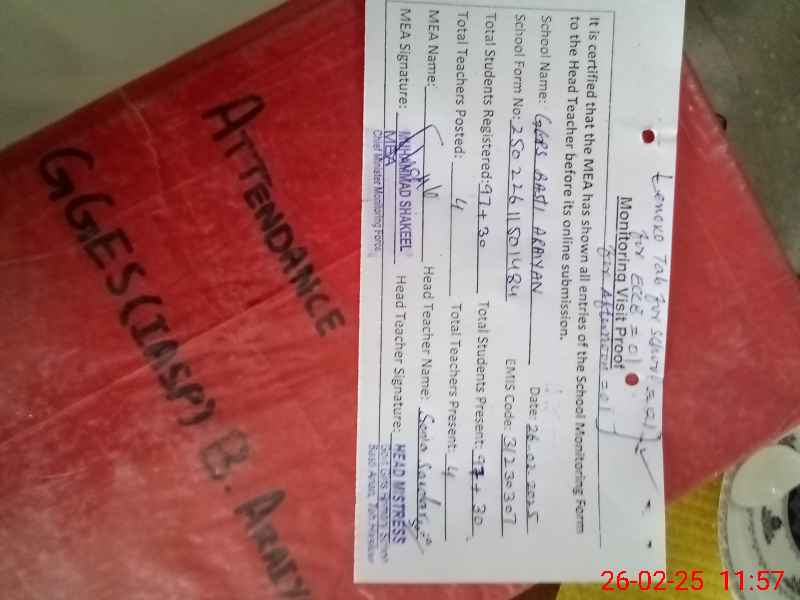 Lenovo Tab for School = 01
for ECCE = 01
Monitoring Visit Proof
for Afternoon = 01
It is certified that the MEA has shown all entries of the School Monitoring Form
to the Head Teacher before its online submission.
School Name: GGPS BASTI ARAIYAN Date: 26.02.2025
School Form No: EMIS Code: 31230307
Total Students Registered: 97+30 Total Students Present: 97+30
Total Teachers Posted: 4 Total Teachers Present: 4
MEA Name: Head Teacher Name:
MEA Signature: Head Teacher Signature:
MUHAMMAD SHAKEEL
MEA
Chief Minister Monitoring Force
HEAD MISTRESS
ATTENDANCE
GGES(IASP) B. ARAIY
26-02-25 11:57